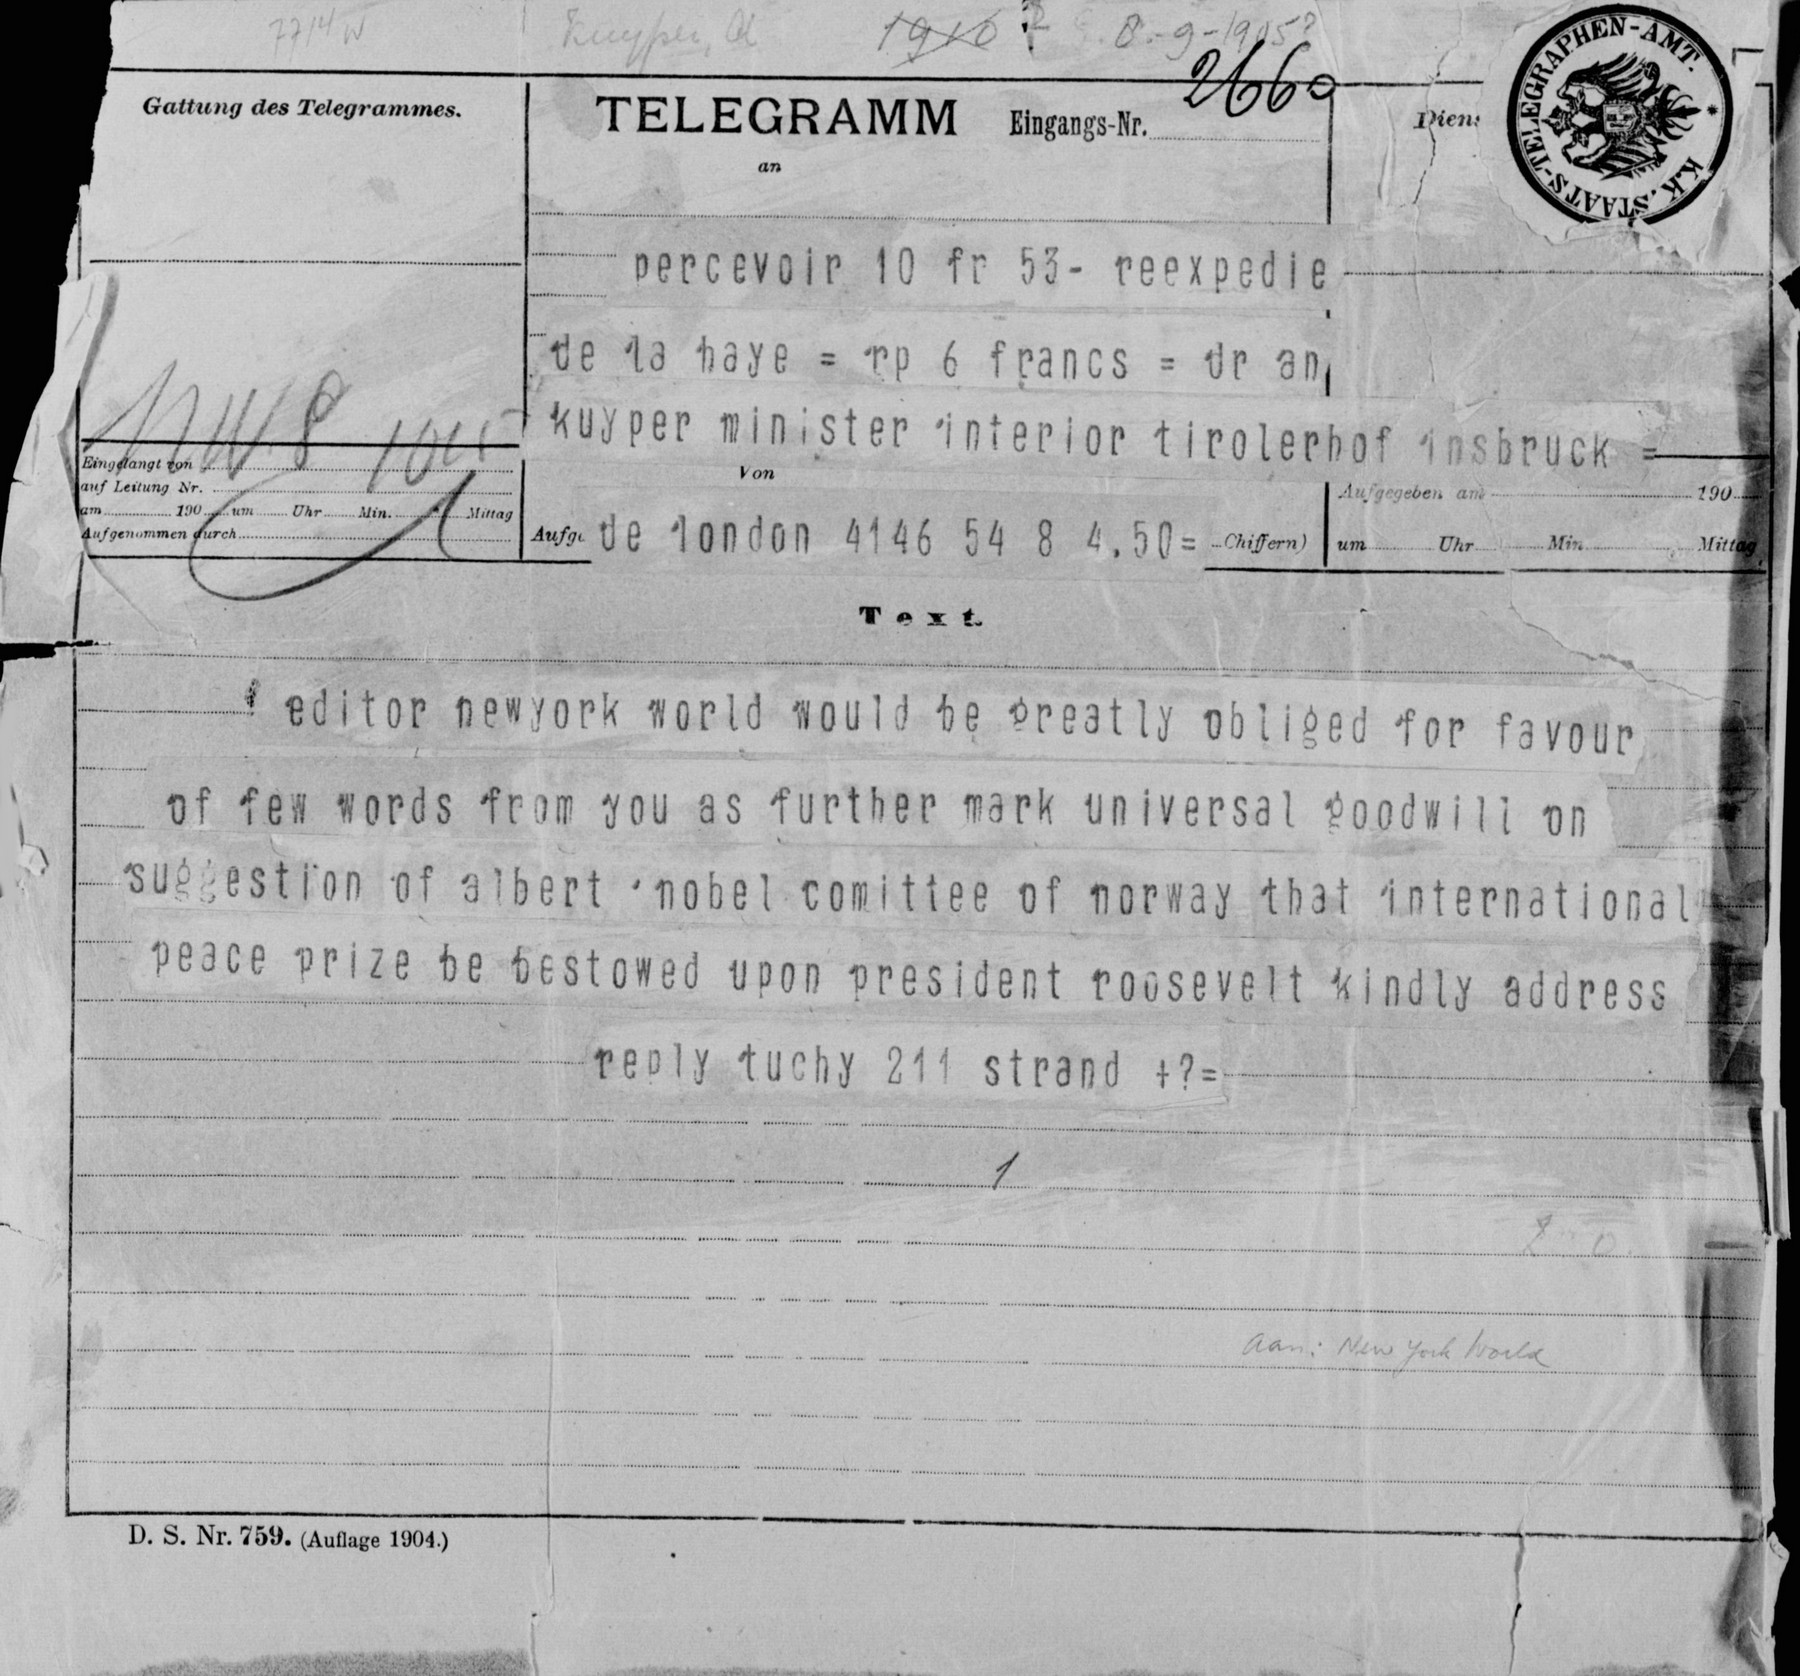 Kuyper, A 1910 ? 8-9-1905?
Gattung des Telegrammes.
TELEGRAMM Eingangs-Nr. 2660
an
K.K. STAATS-TELEGRAPHEN-AMT.
percevoir 10 fr 53- reexpedie
de la haye = rp 6 francs = dr an
kuyper minister interior tirolerhof insbruck =
Von
Eingelangt von
auf Leitung Nr.
am 190 um Uhr Min. Mittag
Aufgenommen durch
de london 4146 54 8 4.50= Chiffern)
Aufgegeben am 190
um Uhr Min Mittag
Text.
editor newyork world would be greatly obliged for favour
of few words from you as further mark universal goodwill on
suggestion of albert nobel comittee of norway that international
peace prize be bestowed upon president roosevelt kindly address
reply tuchy 211 strand +?=
1
aan: New York World
D. S. Nr. 759. (Auflage 1904.)